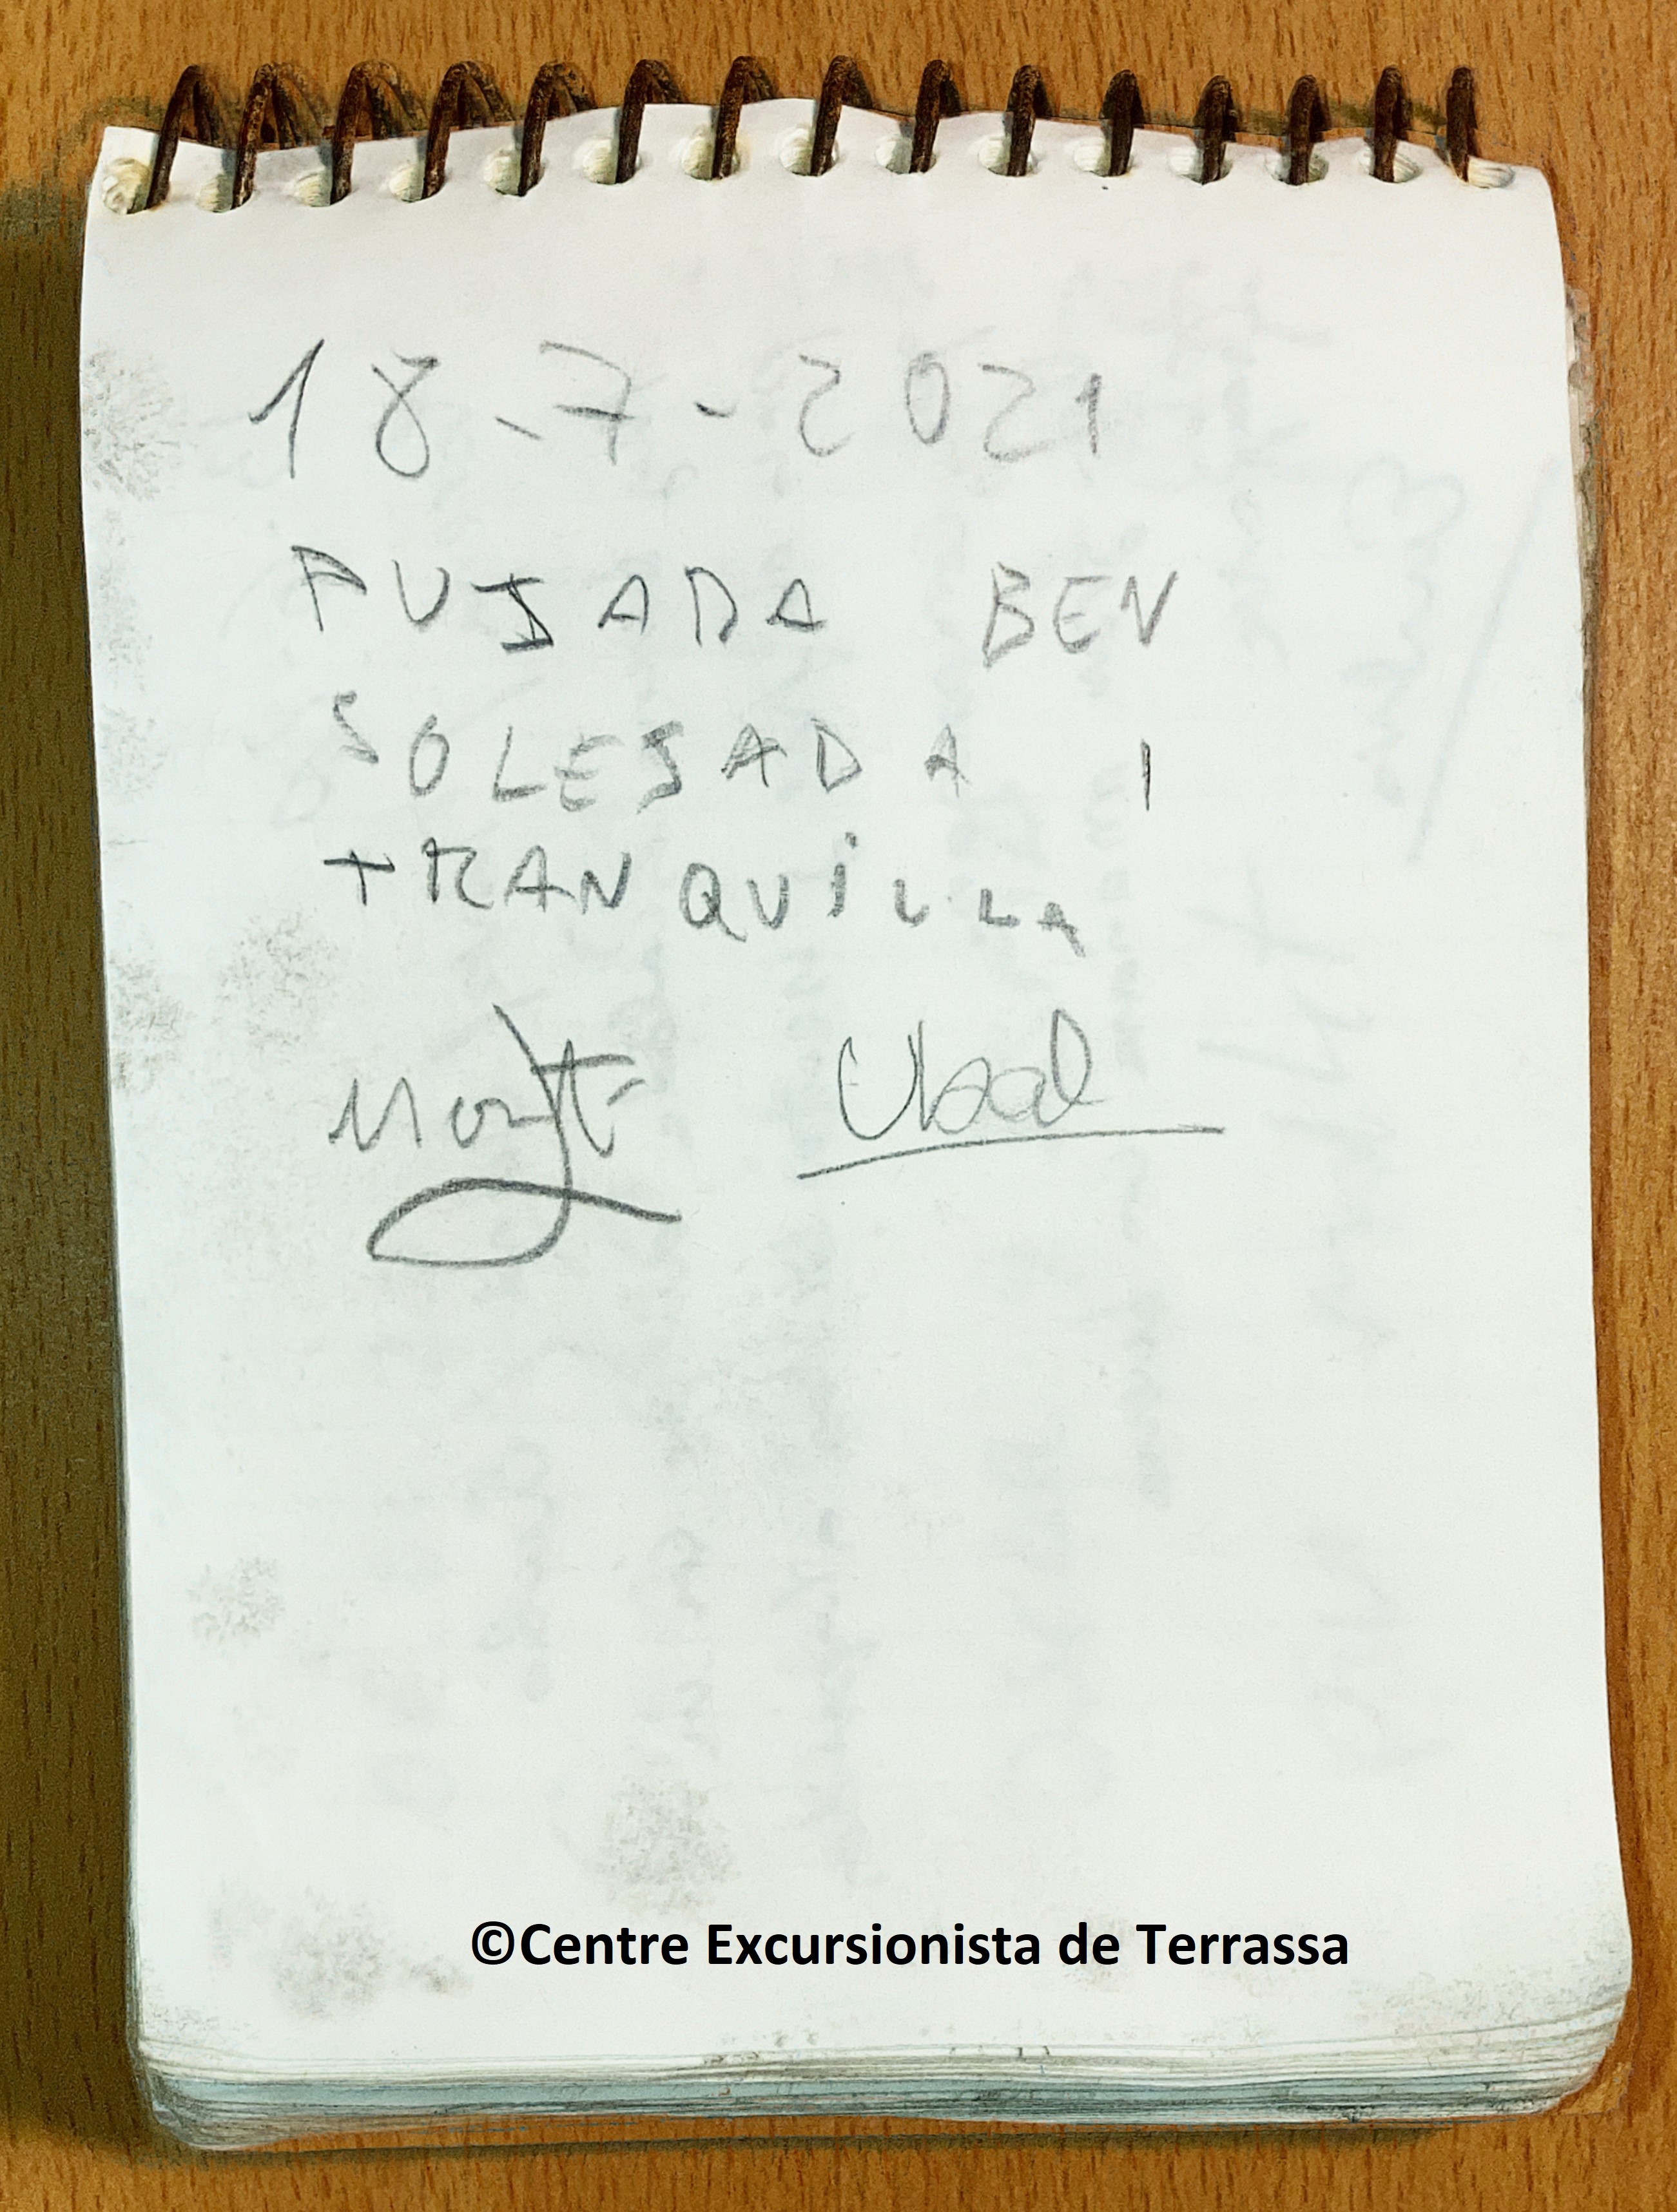 18-7-2021
PUJADA BEN
SOLEJADA I
TRANQUILLA
©Centre Excursionista de Terrassa